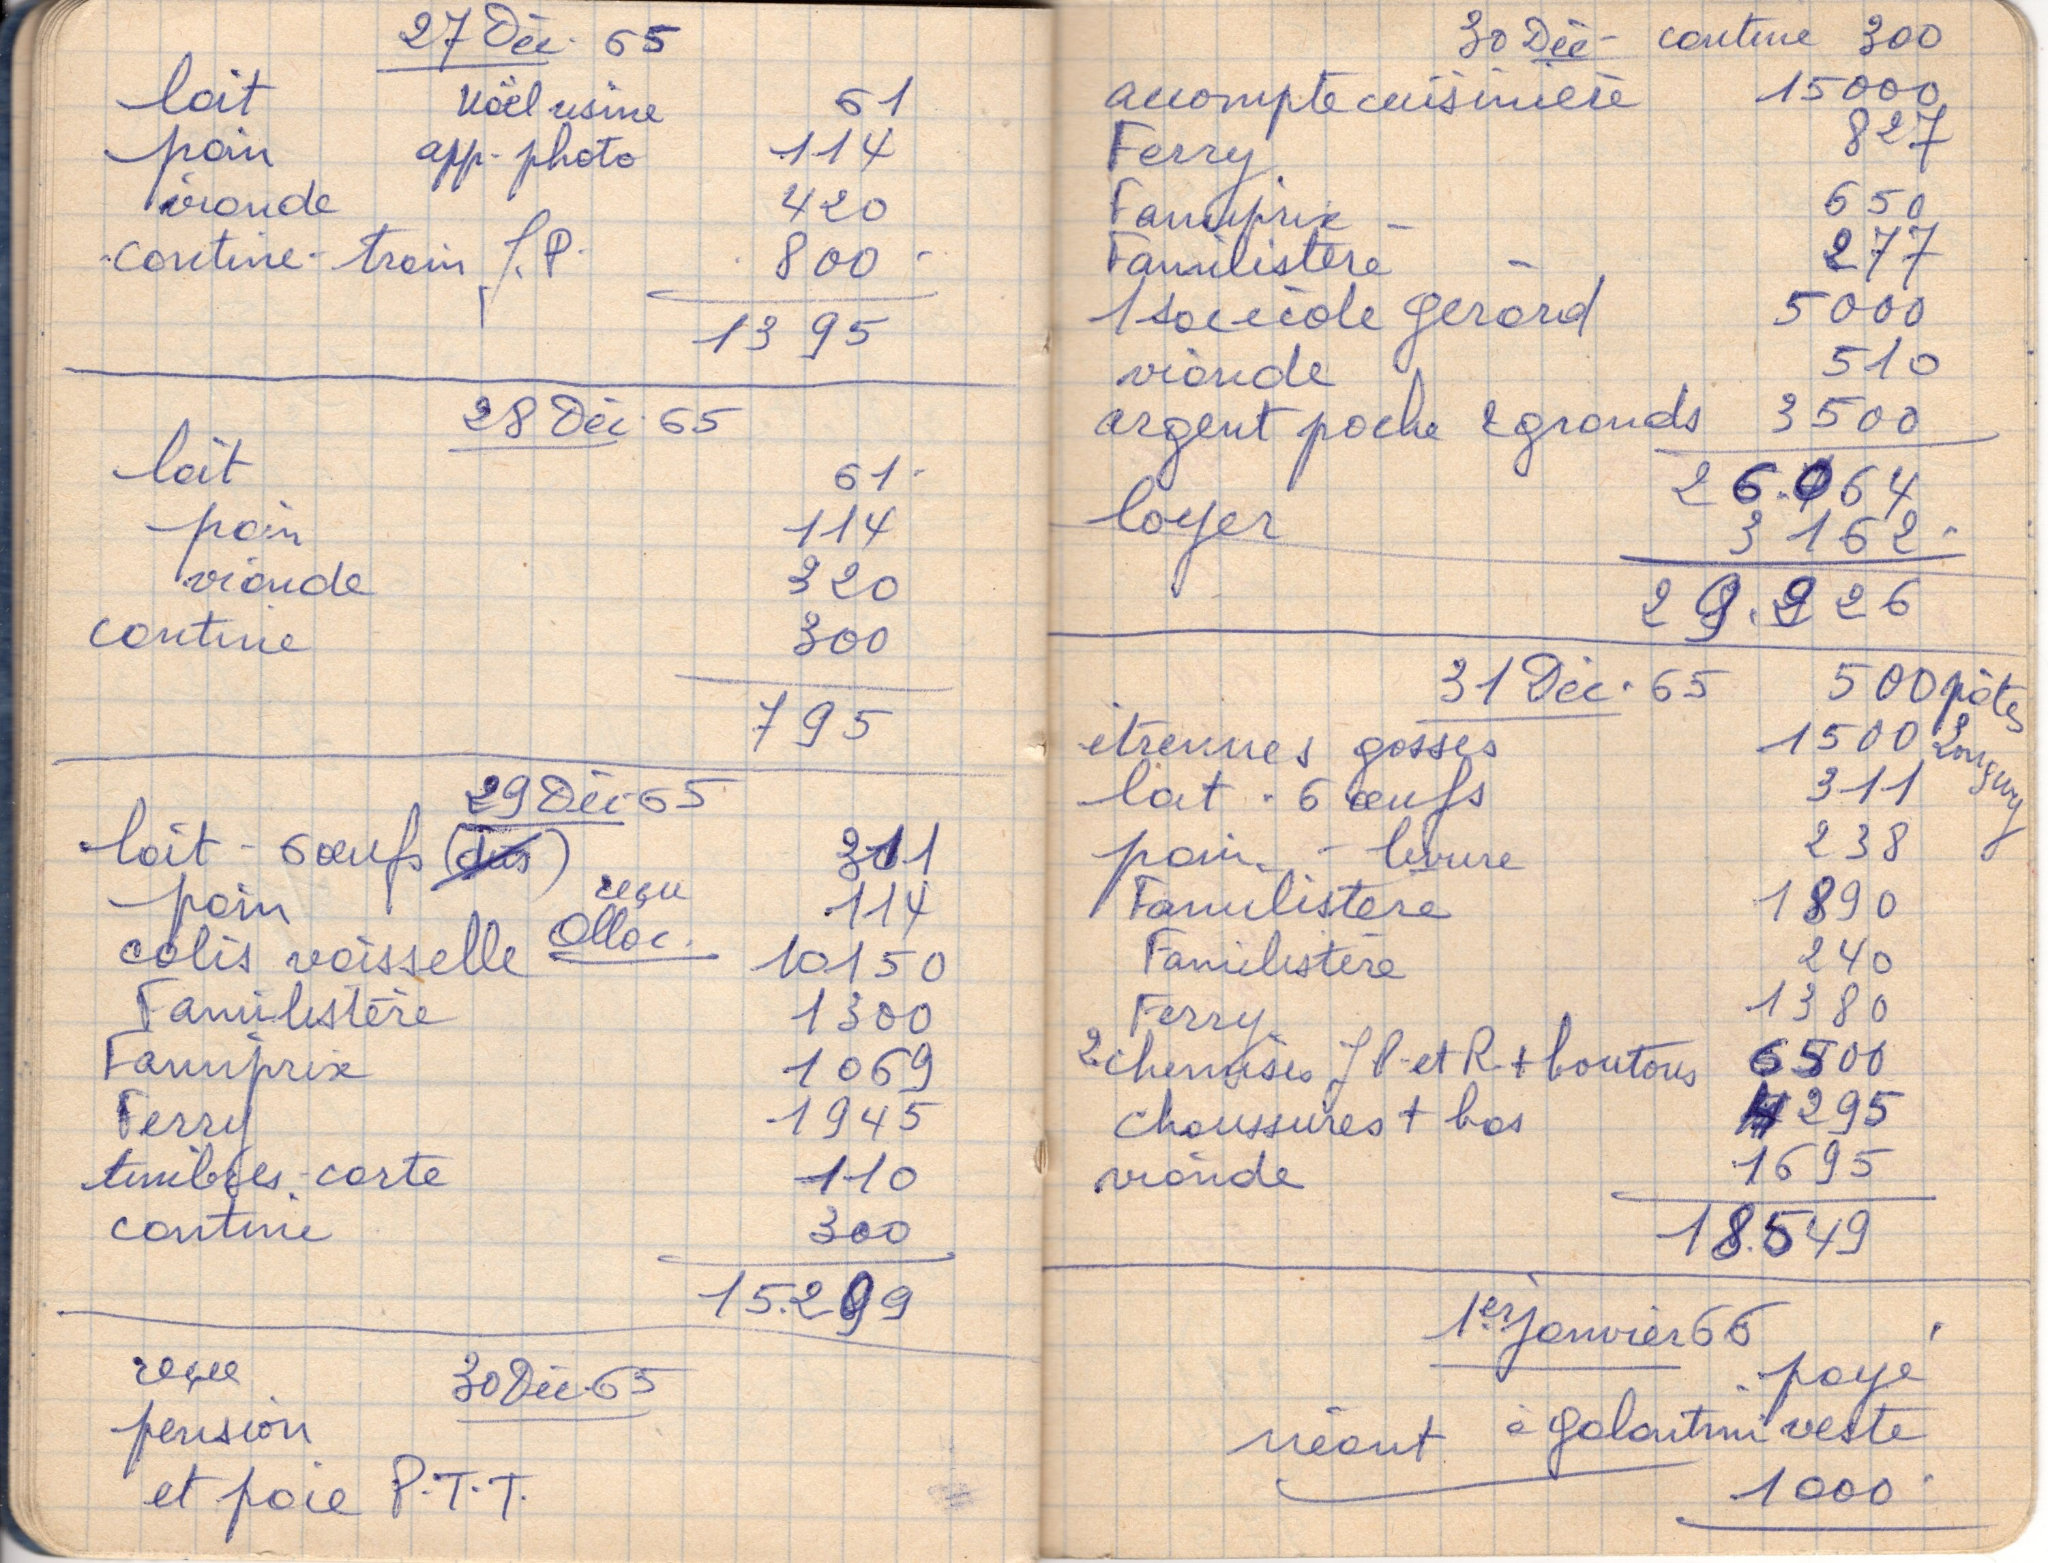 27 Déc. 65
lait Noël usine 61
pain app. photo 114
viande 420
cantine - train J.P. 800
1395
28 Déc. 65
lait 61
pain 114
viande 320
cantine 300
795
29 Déc. 65
lait - 6 œufs 311
pain reçu 114
colis vaisselle Alloc. 10150
Familistère 1300
Famiprix 1069
Ferry 1945
timbres - carte 110
cantine 300
15.299
reçu 30 Déc. 65
pension
et paie P.T.T.
30 Déc - cantine 300
accompte cuisinière 15000
Ferry 827
Famiprix - 650
Familistère - 277
1 sac école Gérard 5000
viande 510
argent poche 2 grands 3500
26.064
loyer 3162
29.226
31 Déc. 65 500 pâtes
étrennes gosses 1500 Longwy
lait - 6 œufs 311
pain - levure 238
Familistère 1890
Familistère 240
Ferry 1380
2 chemises J P. et R. + boutons 6500
chaussures + bas 4295
viande 1695
18.549
1er janvier 66
payé
néant à galantini veste
1000